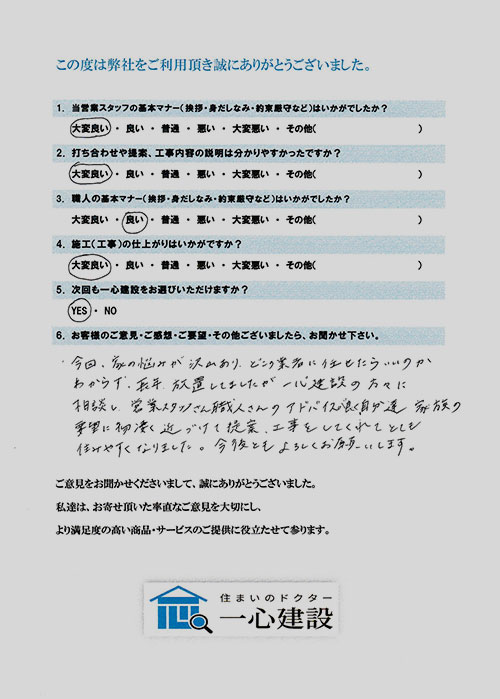 この度は弊社をご利用頂き誠にありがとうございました。
1. 当営業スタッフの基本マナー(挨拶・身だしなみ・約束厳守など)はいかがでしたか?
大変良い ・ 良い ・ 普通 ・ 悪い ・ 大変悪い ・ その他( )
2. 打ち合わせや提案、工事内容の説明は分かりやすかったですか?
大変良い ・ 良い ・ 普通 ・ 悪い ・ 大変悪い ・ その他( )
3. 職人の基本マナー(挨拶・身だしなみ・約束厳守など)はいかがでしたか?
大変良い ・ 良い ・ 普通 ・ 悪い ・ 大変悪い ・ その他( )
4. 施工(工事)の仕上がりはいかがですか?
大変良い ・ 良い ・ 普通 ・ 悪い ・ 大変悪い ・ その他( )
5. 次回も一心建設をお選びいただけますか?
YES ・ NO
6. お客様のご意見・ご感想・ご要望・その他ございましたら、お聞かせ下さい。
・今回、家の悩みが沢山あり、どこの業者に任せたらいいのか
わからず、長年、放置してましたが一心建設の方々に
相談し、営業スタッフさん職人さんのアドバイス良く自分達 家族の
要望に物凄く近づけて提案、工事をしてくれてとても
住みやすくなりました。今後ともよろしくお願いします。
ご意見をお聞かせくださいまして、誠にありがとうございました。
私達は、お寄せ頂いた率直なご意見を大切にし、
より満足度の高い商品・サービスのご提供に役立たせて参ります。
住まいのドクター
一心建設